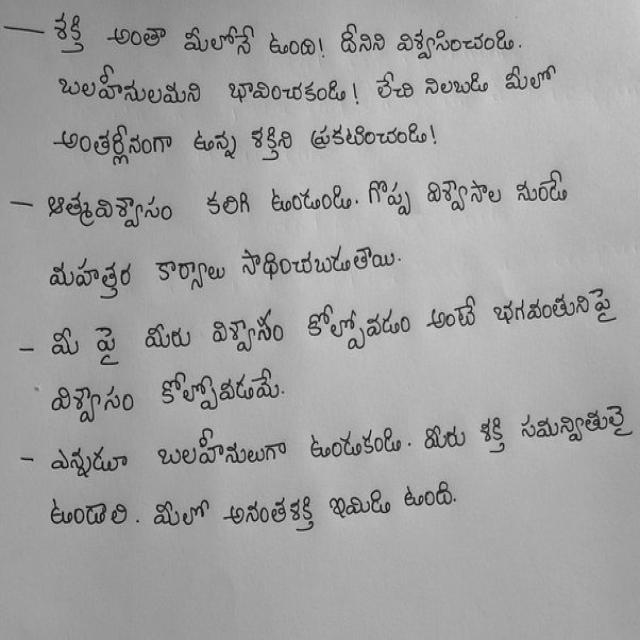 — శక్తి అంతా మీలోనే ఉంది! దీనిని విశ్వసించండి.
బలహీనులమని భావించకండి! లేచి నిలబడి మీలో
అంతర్లీనంగా ఉన్న శక్తిని ప్రకటించండి!
— ఆత్మవిశ్వాసం కలిగి ఉండండి. గొప్ప విశ్వాసాల నుండే
మహత్తర కార్యాలు సాధించబడుతాయి.
- మీ పై మీరు విశ్వాసం కోల్పోవడం అంటే భగవంతునిపై
విశ్వాసం కోల్పోవడమే.
- ఎన్నడూ బలహీనులుగా ఉండకండి. మీరు శక్తి సమన్వితులై
ఉండాలి. మీలో అనంతశక్తి ఇమిడి ఉంది.